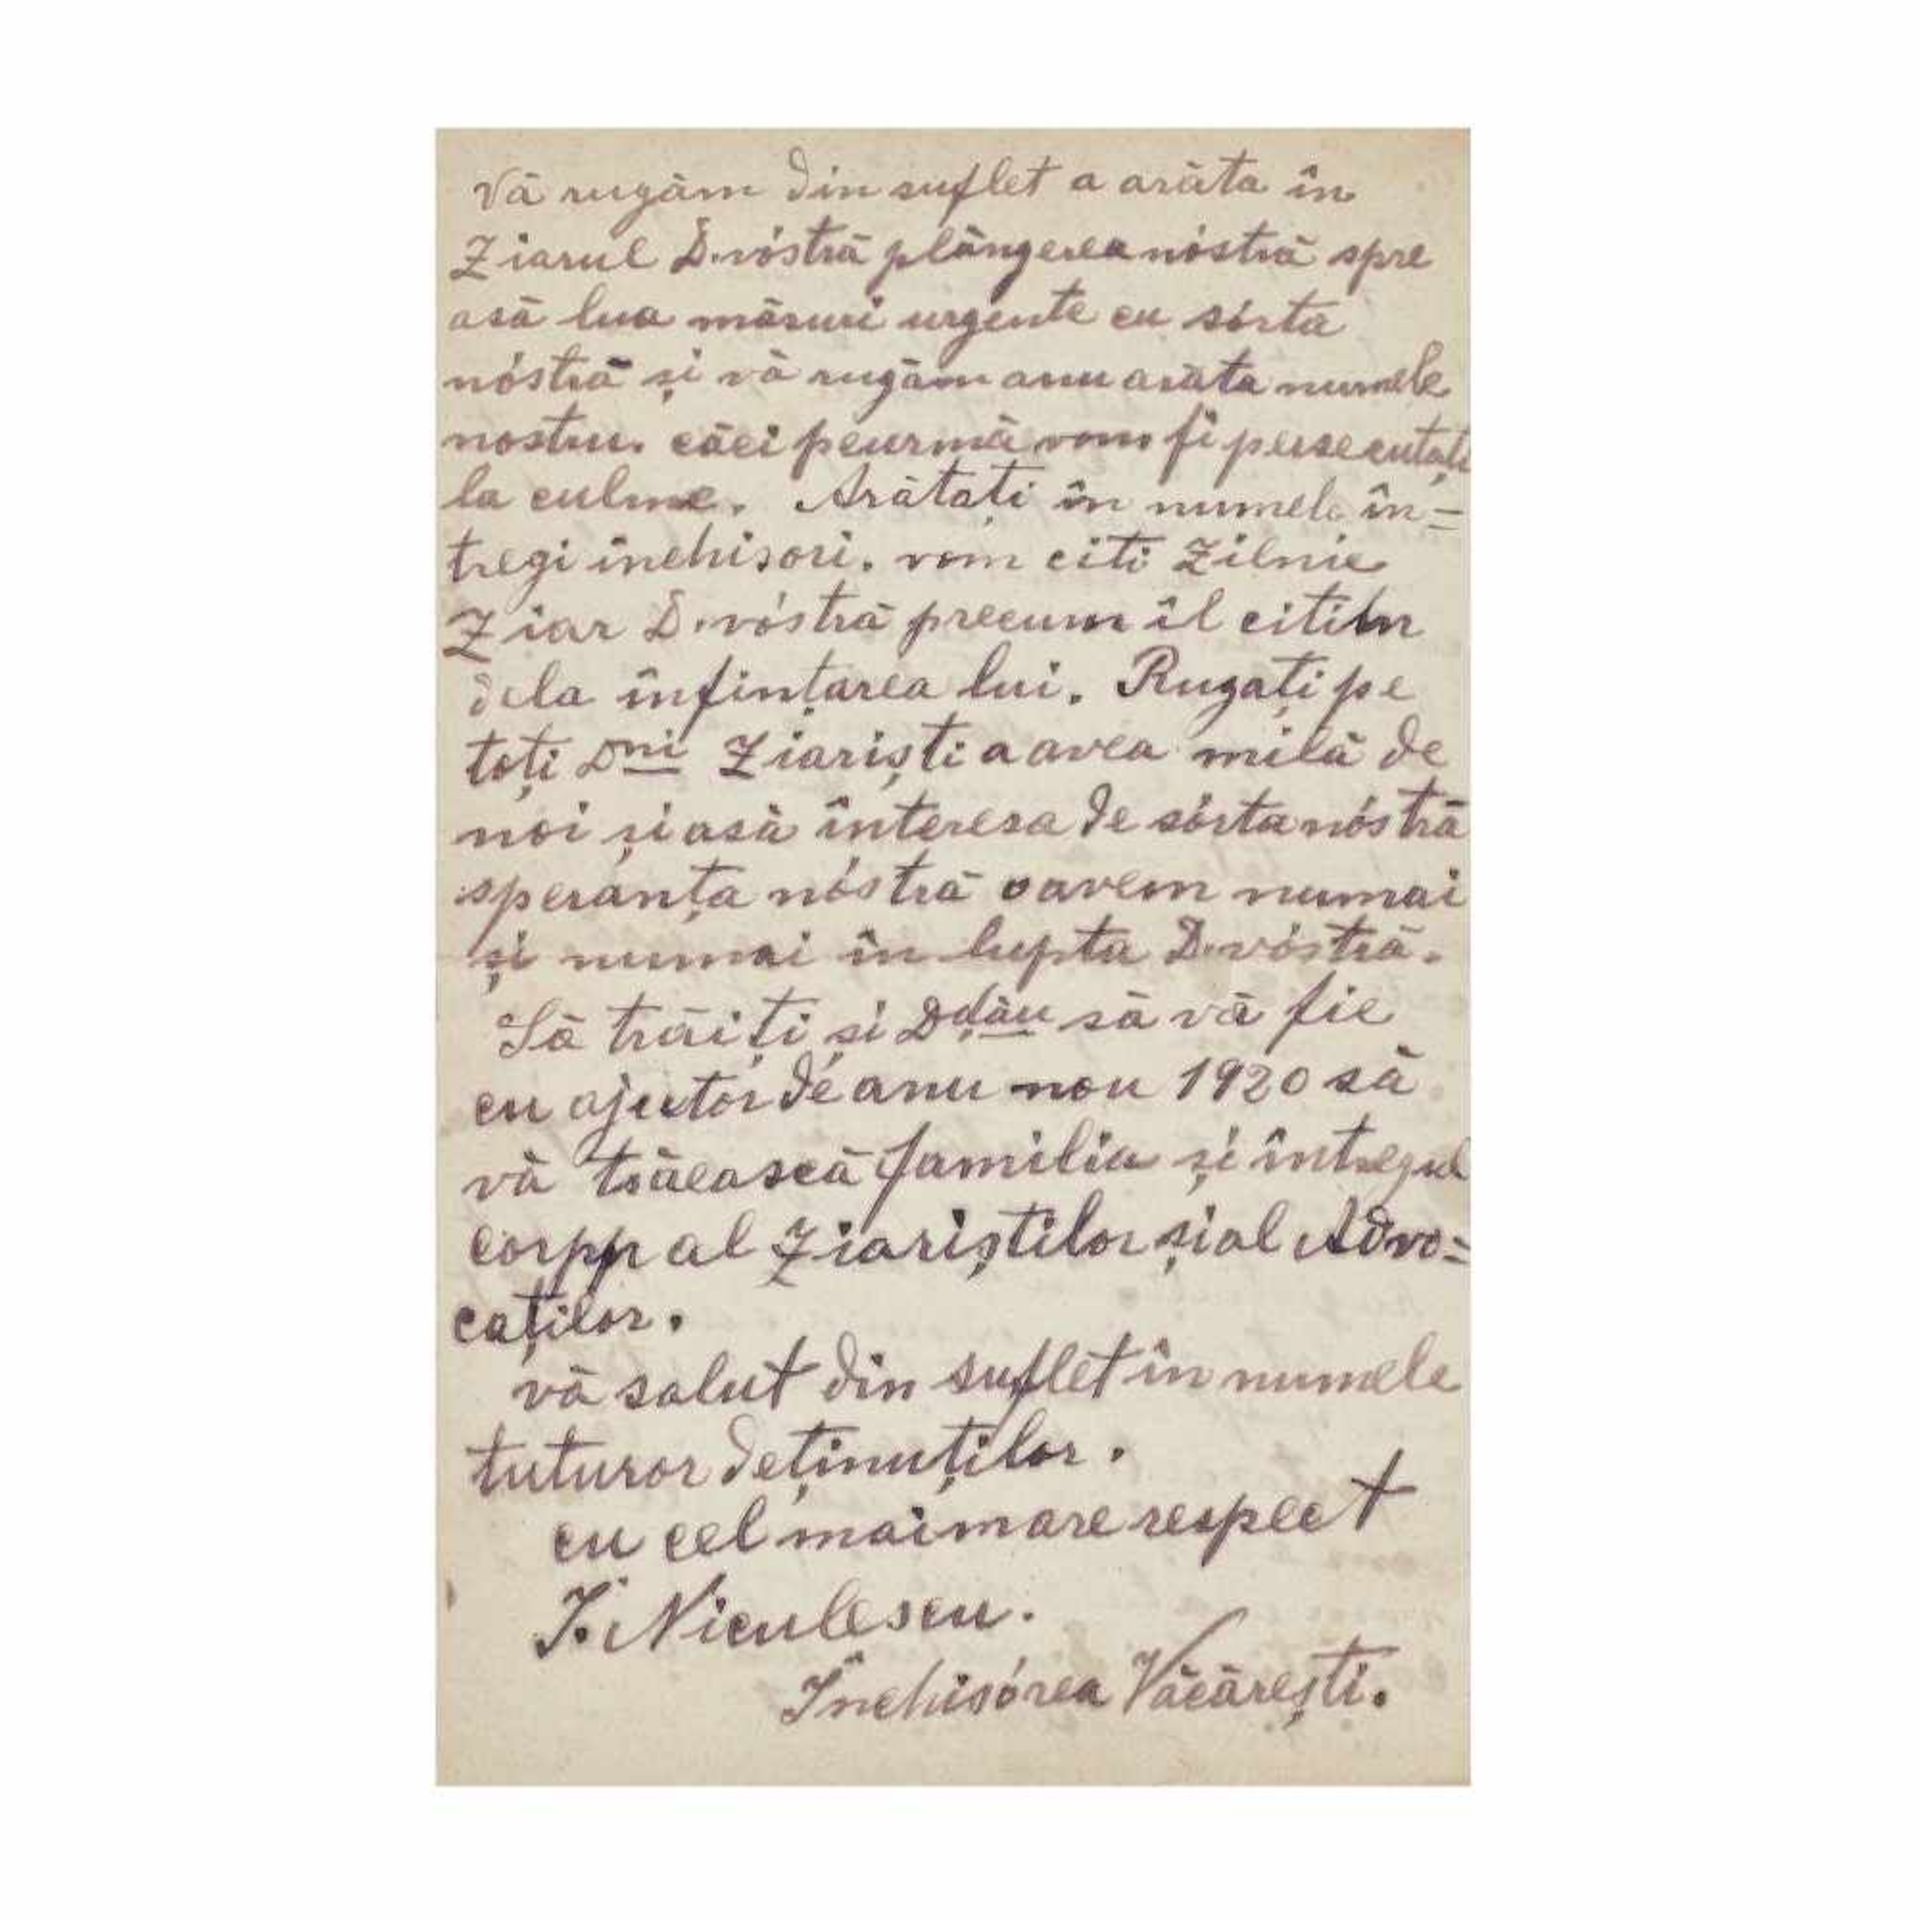 Vă rugăm din suflet a arăta în
Ziarul D-vóstră plângerea nóstră spre
asă lua măsuri urgente cu sórta
nóstră și vă rugăm anu arăta numele
nostru. căci peurmă vom fi persecutați
la culme. Arătați în numele în=
tregi inchisori. vom citi Zilnic
Ziar D-vóstră precum îl citim
dela înfințarea lui. Rugați pe
toți Dni Ziariști a avea milă de
noi și asă interesa de sórta nóstră
speranța nóstră o avem numai
și numai în lupta D-vóstră.
Să trăiți și Ddău să vă fie
cu ajutor de anu nou 1920 să
vă trăească familia și întregul
corpp al Ziariștilor și al Advo=
caților.
vă salut din suflet în numele
tuturor deținuților.
cu cel mai mare respect
I. Niculescu.
Închisórea Văcărești.